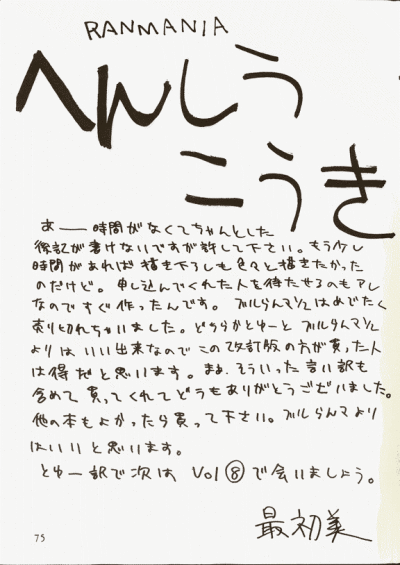 RANMANIA
へんしう
こうき
あー時間がなくてちゃんとした
後記が書けないですが許して下さい。もう少し
時間があれば描き下ろしも色々と描きたかった
のだけど。申し込んでくれた人を待たせるのもアレ
なのですぐ作ったんです。ブルらんマ1/2はめでたく
売り切れちゃいました。どちらかとゆーとブルタンマ1/2
よりはいい出来なのでこの改訂版の方が買った人
は得だと思います。まぁ、そういった言い訳も
含めて買ってくれてどうもありがとうございました。
他の本もよかったら買って下さい。ブルらんマより
はいいと思います。
とゆー訳で次は Vol⑧で会いましょう。
最初美
75